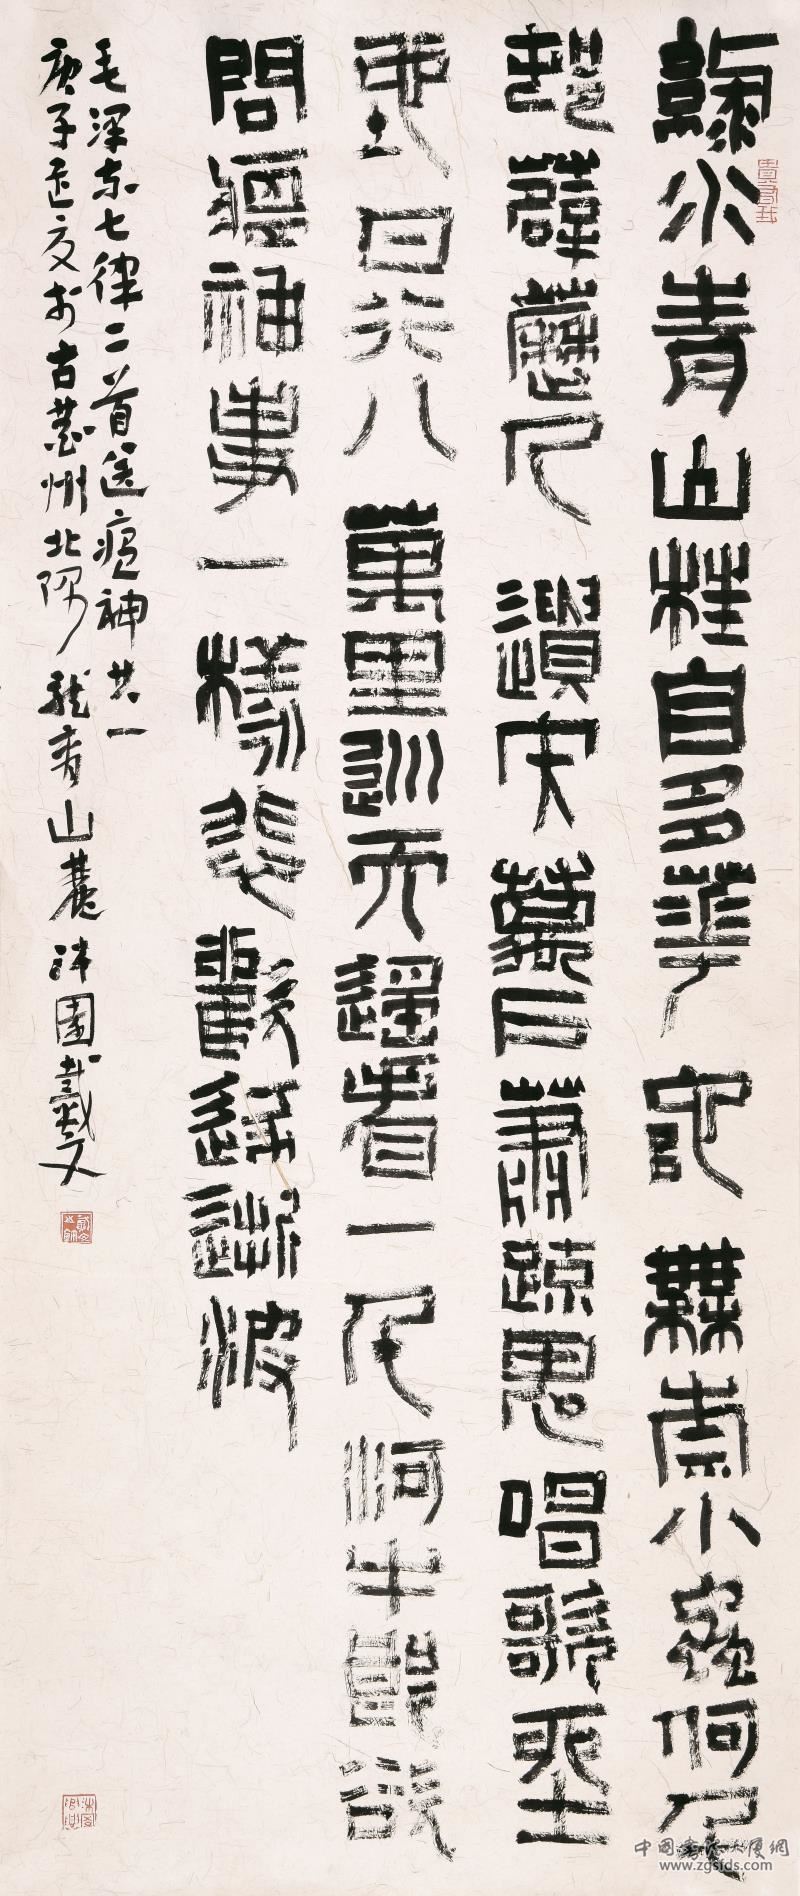 綠水青山枉自多華佗無奈小蟲何千
邨薜荔人遺矢萬戶蕭疏鬼唱歌坐
地日行八萬里巡天遥看一千河牛郎欲
問瘟神事一樣悲歡逐逝波
毛澤东七律二首送瘟神其一
庚子夏於古州北隅龍青山麓沐園戴文
中國書法大厦網
www.zgsfds.com